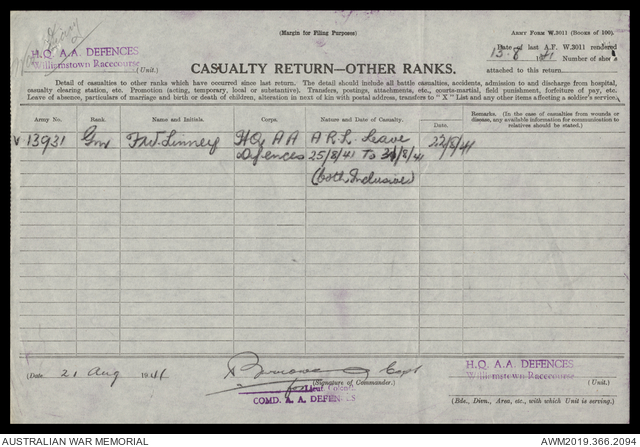 (Margin for Filing Purposes)
ARMY FORM W.3011 (BOOKS OF 100).
H.Q. A.A. DEFENCES
Williamstown Racecourse (Unit.)
Date of last A.F. W.3011 rendered
13-8 1941
Number of sheets
attached to this return
CASUALTY RETURN—OTHER RANKS.
Detail of casualties to other ranks which have occurred since last return. The detail should include all battle casualties, accidents, admission to and discharge from hospital,
casualty clearing station, etc. Promotion (acting, temporary, local or substantive). Transfers, postings, attachments, etc., courts-martial, field punishment, forfeiture of pay, etc.
Leave of absence, particulars of marriage and birth or death of children, alteration in next of kin with postal address, transfers to "X" List and any other items affecting a soldier's service.
Army No. Rank. Name and Initials. Corps. Nature and Date of Casualty. Date. Remarks. (In the case of casualties from wounds or
disease, any available information for communication to
relatives should be stated.)
13931 Gnr F.W. Linney HQ AA A R L Leave 22/8/41
Defences 25/8/41 To 31/8/41
(both Inclusive)
(Date 21 Aug 1941 Capt
(Signature of Commander.)
for Lieut. Colonel
COMD. A. A. DEFENCES
H.Q. A.A. DEFENCES
Williamstown Racecourse (Unit.)
(Bde., Divn., Area, etc., with which Unit is serving.)
AUSTRALIAN WAR MEMORIAL AWM2019.366.2094